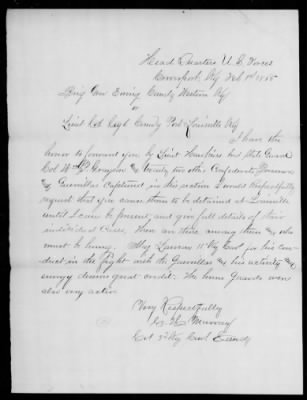 Head Quarters U. S. Forces
Ky Feb 1st 1865
Brig Gen Ewing Comdg Western Ky
or
Lieut Col Comdg Post Louisville Ky
I have the
honor to forward you by Lieut State Guard
Col and twenty two other Confederate Prisoners
and Guerrillas Captured in this section I would Respectfully
request that you cause them to be detained at Louisville
until I can be present, and give full details of their
individual Cases. There are three among them who
must be hung. Maj 11" Ky Cav for his con-
duct in the Fight with the Guerrillas and his activity
deserves great credit. The home Guards were
also very active
Very Respectfully
Murray
Col 3" Ky Cav Comdg